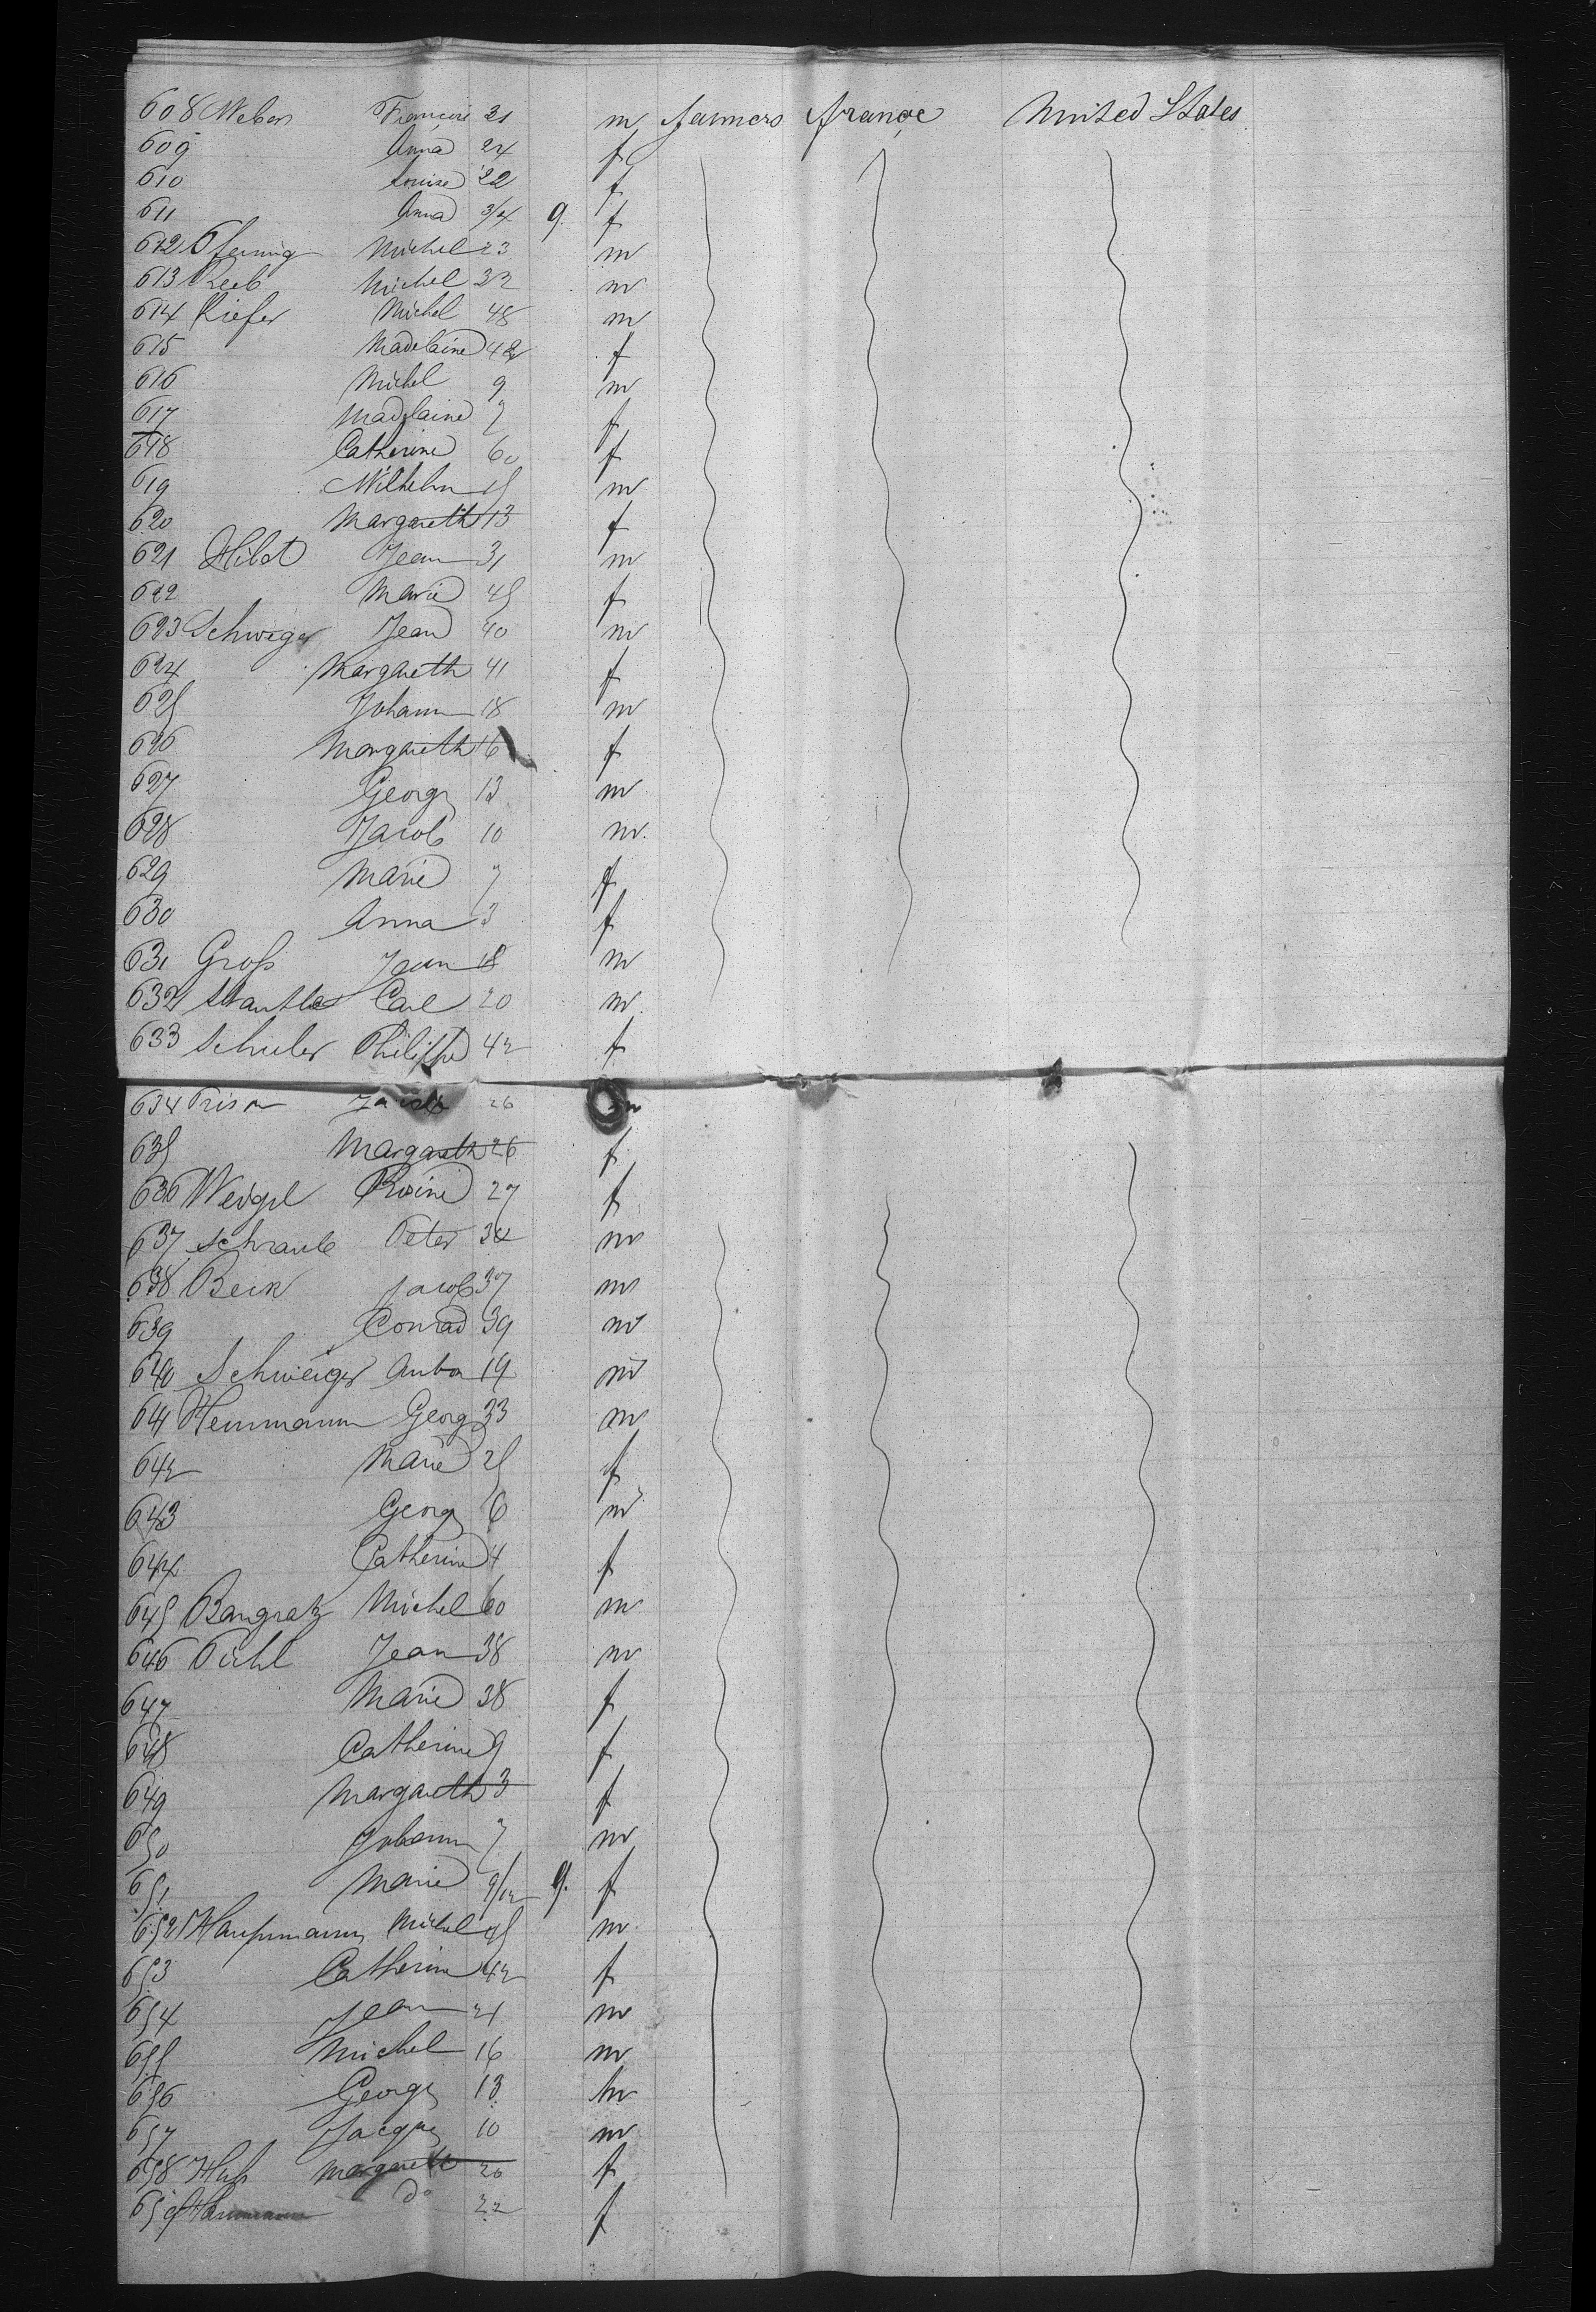 608 Weber François 21 m farmers france United States
609 Anna 24 f
610 Louise 22 f
611 Anna 3/4 9. f
612 Pfennig Michel 23 m
613 Reeb Michel 32 m
614 Kiefer Michel 48 m
615 Madelaine 42 f
616 Michel 9 m
617 Madelaine 7 f
618 Catherine 60 f
619 Wilhelm 15 m
620 Margareth 13 f
621 Hibot Jean 31 m
622 Marie 45 f
623 Schweger Jean 40 m
624 Margareth 41 f
625 Johann 18 m
626 Margareth 16 f
627 Georg 13 m
628 Jacob 10 m.
629 Marie 7 f
630 Anna 3 f
631 Groß Jean 18 m
632 Carl 20 m
633 Schuler Philippe 42 f
634 Jacob 26 m
635 Margareth 26 f
636 Weigel Rosine 27 f
637 Schraub Peter 34 m
638 Beck Jacob 37 m
639 Conrad 39 m
640 Schweiger Anton 19 m
641 Hemmann Georg 33 m
642 Marie 25 f
643 Georg 6 m
644 Catherine 4 f
645 Bangratz Michel 60 m
646 Pihl Jean 38 m
647 Marie 38 f
648 Catherine 9 f
649 Margareth 3 f
650 Johann 7 m
651 Marie 9/12 9. f
652 Michel 45 m
653 Catherine 42 f
654 Jean 21 m
655 Michel 16 m
656 Georg 13 m
657 Jacques 10 m
658 Huß Margareth 20 f
659 do 22 f